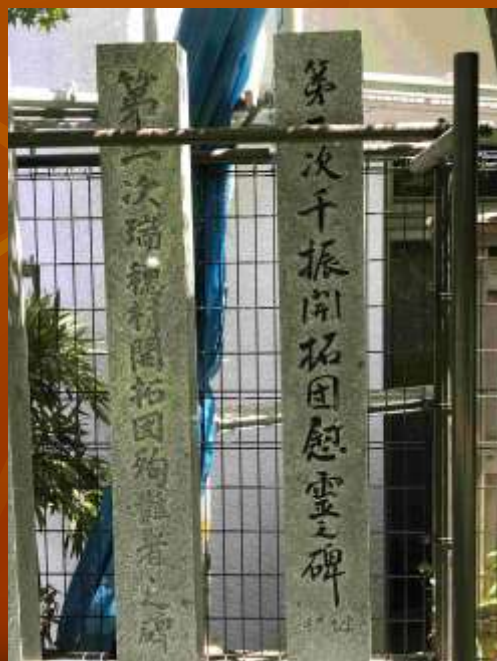 第次千振開拓団慰霊之碑
第次瑞穂村開拓団殉難者之碑